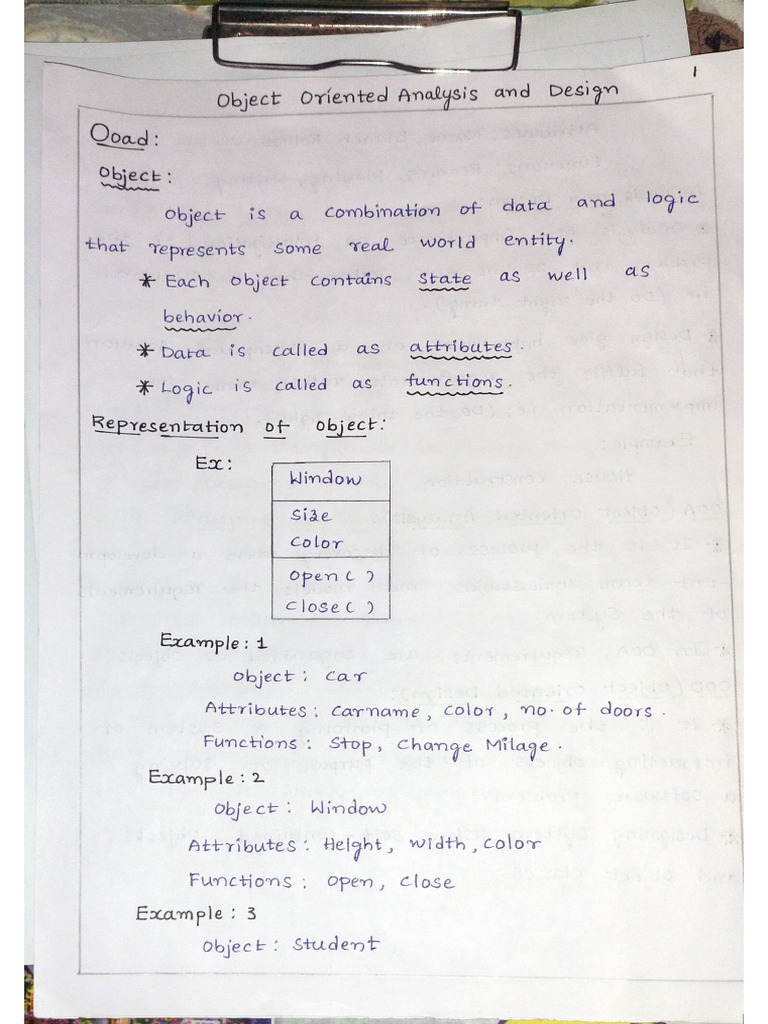 1
Object Oriented Analysis and Design
Ooad:
Object:
Object is a combination of data and logic
that represents some real world entity.
* Each object contains state as well as
behavior.
* Data is called as attributes.
* Logic is called as functions.
Representation of object:
Ex:
Window
Size
Color
Open( )
Close( )
Example: 1
Object: Car
Attributes: Carname, Color, no. of doors.
Functions: Stop, Change Milage.
Example: 2
Object: Window
Attributes: Height, Width, Color
Functions: Open, Close
Example: 3
Object: Student